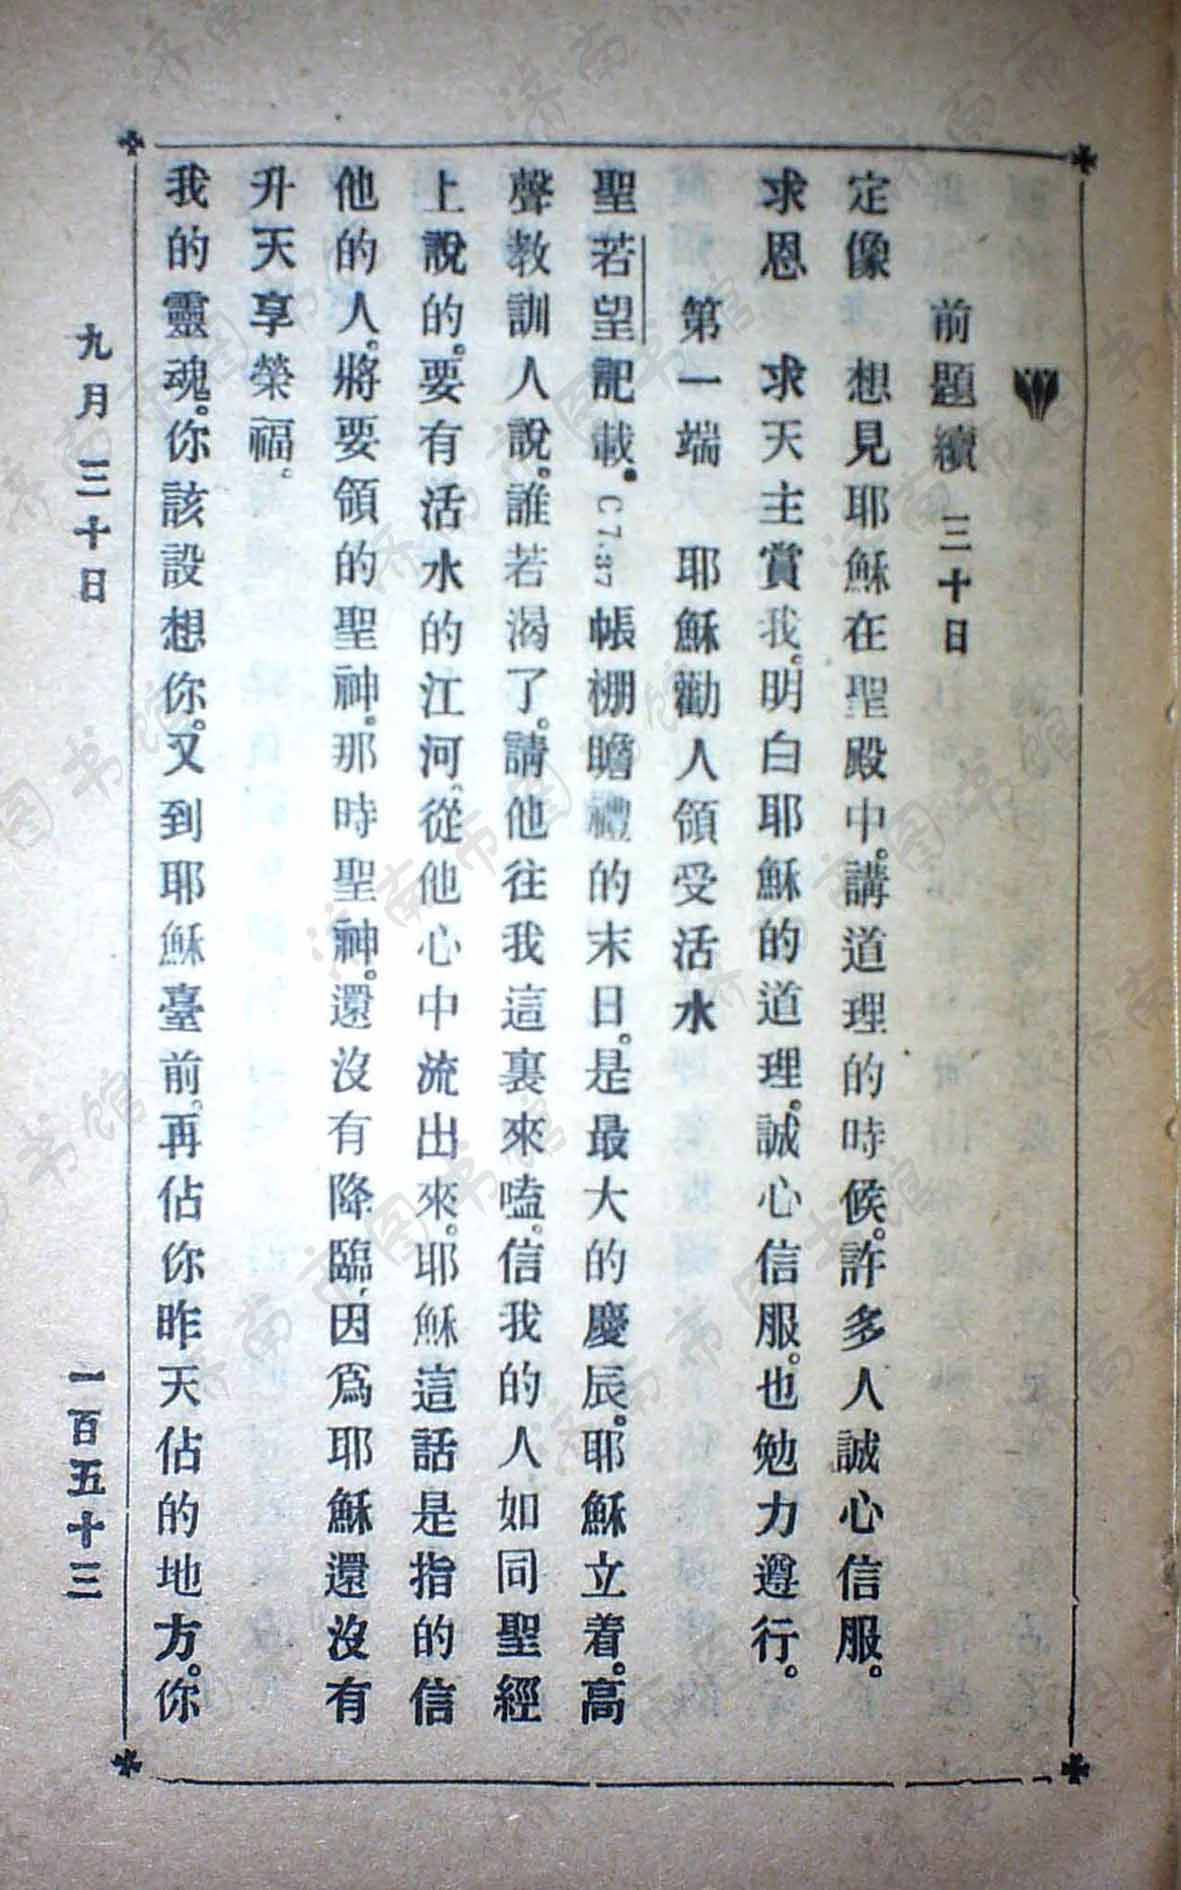 前題續 三十日
定像 想見耶穌在聖殿中。講道理的時候。許多人誠心信服。
求恩 求天主賞我。明白耶穌的道理。誠心信服。也勉力遵行。
第一端 耶穌勸人領受活水
聖若望記載。C7.37帳棚瞻禮的末日。是最大的慶辰。耶穌立着。高
聲教訓人說。誰若渴了。請他往我這裏來嗑。信我的人如同聖經
上說的。要有活水的江河。從他心中流出來。耶穌這話是指的信
他的人。將要領的聖神。那時聖神。還沒有降臨。因爲耶穌還沒有
升天享榮福。
我的靈魂。你該設想你。又到耶穌臺前。再佔你昨天佔的地方。你
九月三十日 一百五十三